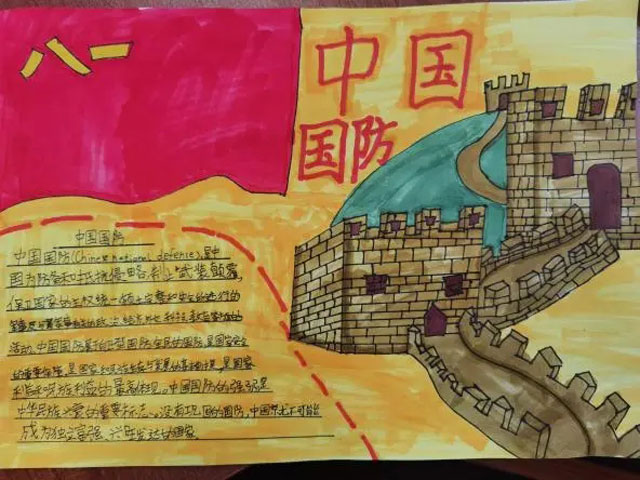 八一
中国
国防
中国国防
中国国防(Chinese national defense),是中
国为防备和抵抗侵略,制止武装颠覆,
保卫国家的主权统一领土完整和安全所进行的
军事及与军事有关的政治经济外交科技教育等方面的
活动,中国国防是自卫型国防,全民的国防,是国家安全
的重要保障,是国家
利益和民族利益的最高体现。中国国防的强弱是
中华民族兴衰的重要标志,没有巩固的国防,中国就不可能
成为独立富强、兴旺发达的国家。